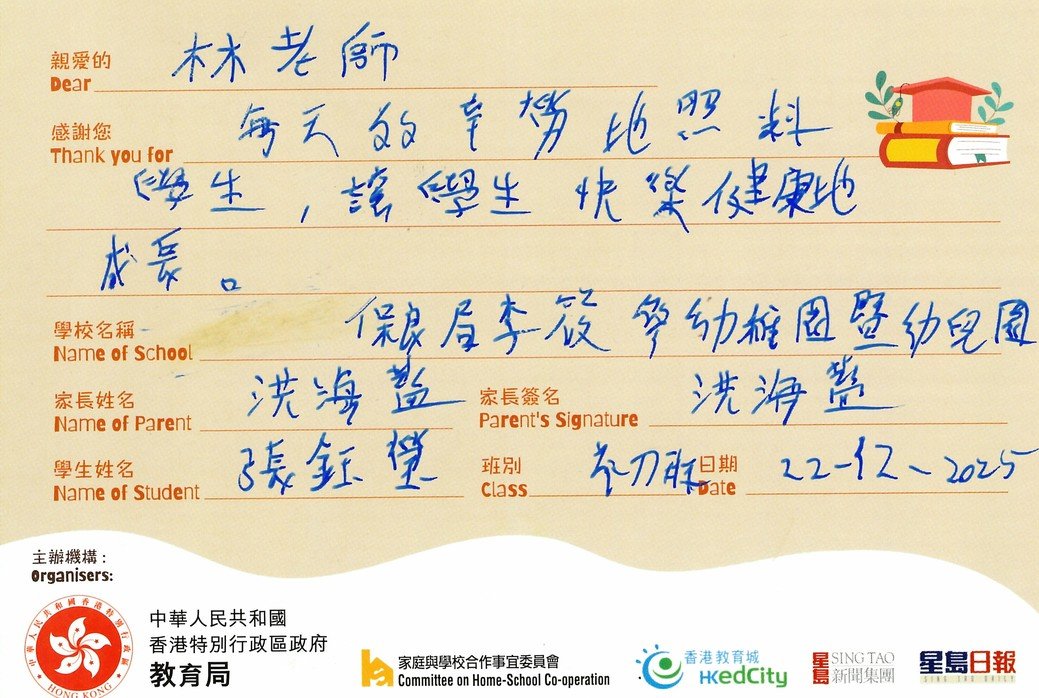 親愛的 林老師
Dear
感謝您 每天的辛勞地照料
Thank you for
學生，讓學生快樂健康地
成長。
學校名稱 保良局李筱夢幼稚園暨幼兒園
Name of School
家長姓名 洪海 家長簽名 洪海
Name of Parent Parent's Signature
學生姓名 張鈺瑩 班別 初班 日期 22-12-2025
Name of Student Class Date
主辦機構：
Organisers:
中華人民共和國香港特別行政區政府
HONG KONG
中華人民共和國
香港特別行政區政府
教育局
家庭與學校合作事宜委員會
Committee on Home-School Co-operation
香港教育城
HKedCity
星島 SING TAO
新聞集團
星島日報
SING TAO DAILY